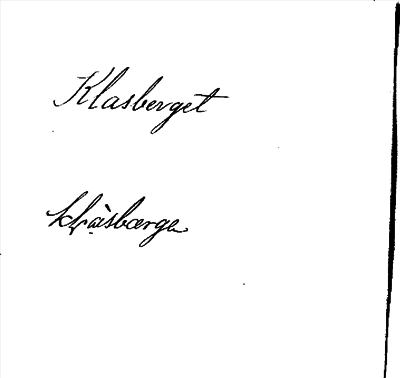 Klasberget
klàsbærge